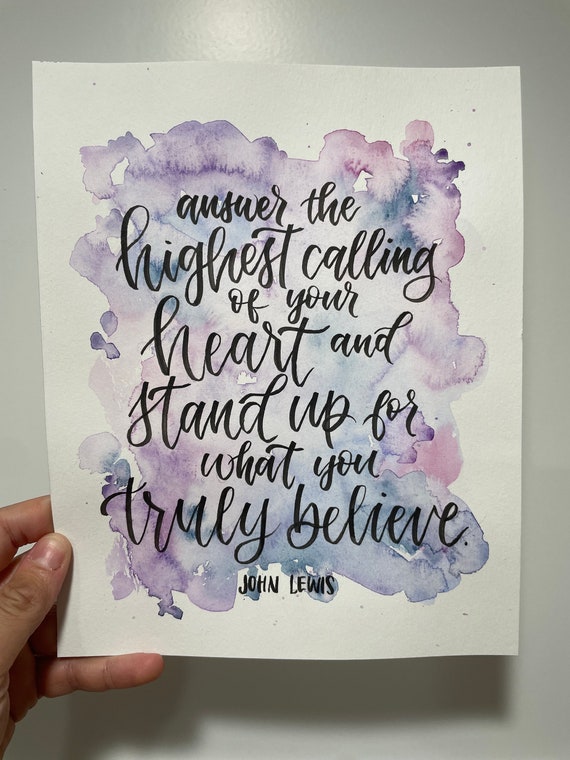 answer the
highest calling
of your
heart and
stand up for
what you
truly believe.
JOHN LEWIS